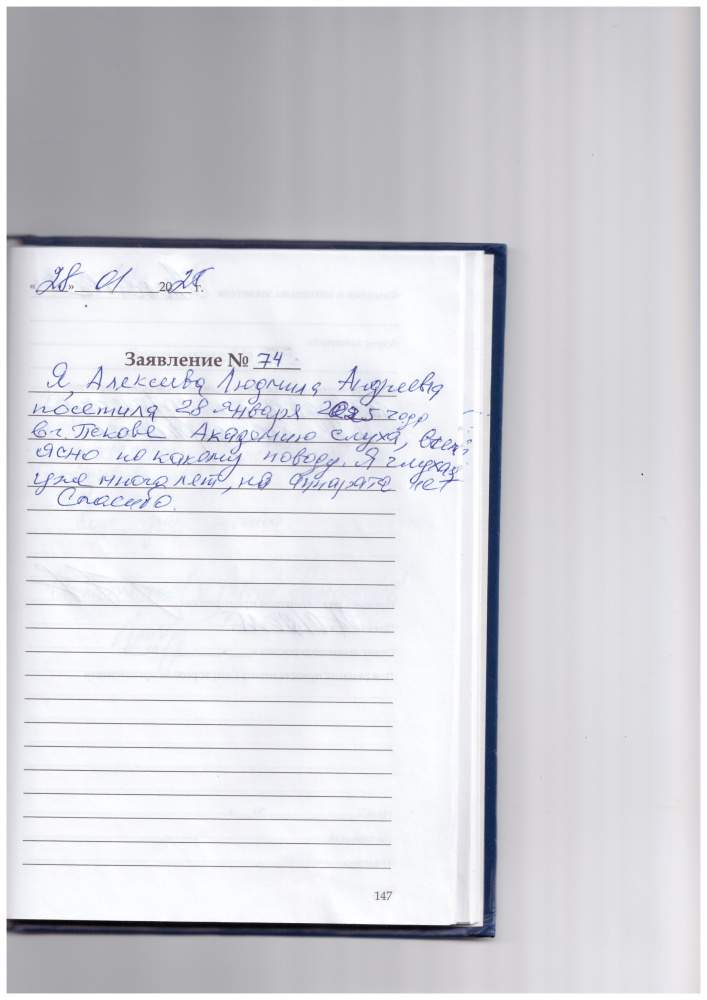 «28» 01 2025 г.
Заявление № 74
Я, Алексеева Людмила Андреевна
посетила 28 января 2025 года
в г. Пскове Академию слуха, всем
ясно по какому поводу. Я глухая
уже много лет, но аппарата нет
Спасибо.
147